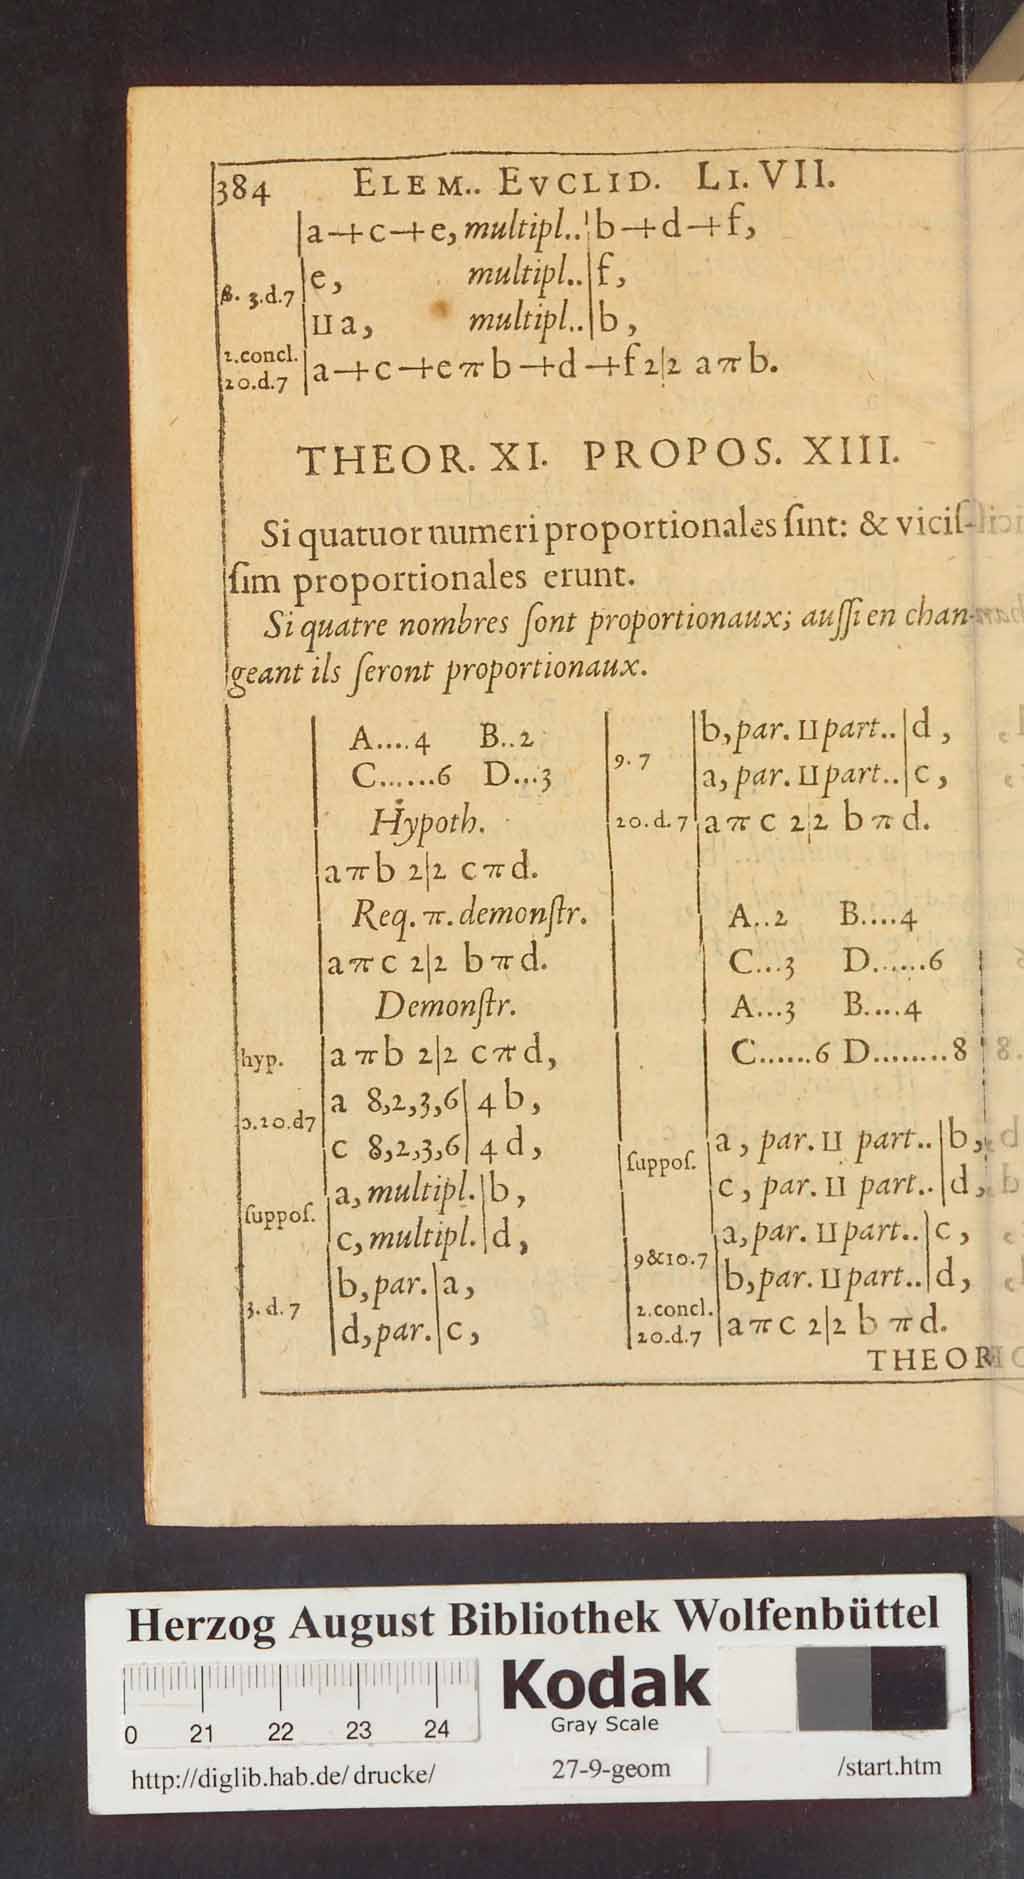 384 ELEM.. EVCLID. LI. VII.
a+c+e, multipl.. | b+d+f,
e, multipl.. | f,
ß. 3.d.7
II a, multipl.. | b,
2.concl.
20.d.7 | a+c+e π b+d+f 2|2 a π b.
THEOR. XI. PROPOS. XIII.
Si quatuor numeri proportionales ſint: & viciſ-
ſim proportionales erunt.
Si quatre nombres ſont proportionaux; auſſi en chan-
geant ils ſeront proportionaux.
A....4 B..2
C......6 D...3
Hypoth.
a π b 2|2 c π d.
Req. π. demonſtr.
a π c 2|2 b π d.
Demonſtr.
hyp. | a π b 2|2 c π d,
20.d7
a 8,2,3,6| 4 b,
c 8,2,3,6| 4 d,
ſuppoſ.
a, multipl. | b,
c, multipl. | d,
3. d. 7
b, par. | a,
d, par. | c,
9. 7
b, par. II part.. | d,
a, par. II part.. | c,
20. d. 7 | a π c 2|2 b π d.
A..2 B....4
C...3 D......6
A...3 B....4
C......6 D........8
ſuppoſ.
a, par. II part.. | b,
c, par. II part.. | d,
9&10.7
a, par. II part.. | c,
b, par. II part.. | d,
2.concl.
20.d.7 | a π c 2|2 b π d.
THEOR
Herzog August Bibliothek Wolfenbüttel
Kodak
Gray Scale
0 21 22 23 24
http://diglib.hab.de/drucke/ 27-9-geom /start.htm